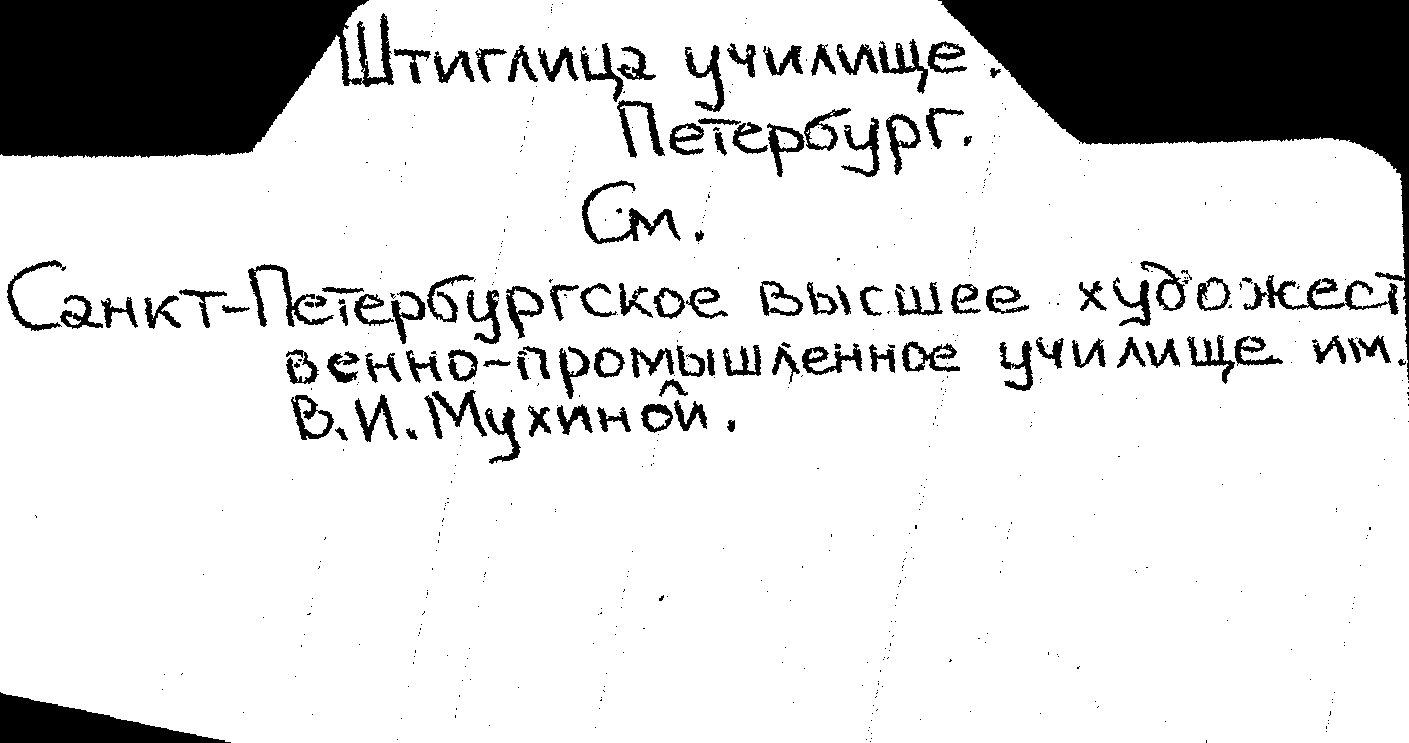 Штиглица училище.
Петербург.
См.
Санкт-Петербургское высшее художест
венно-промышленное училище им.
В.И.Мухиной.